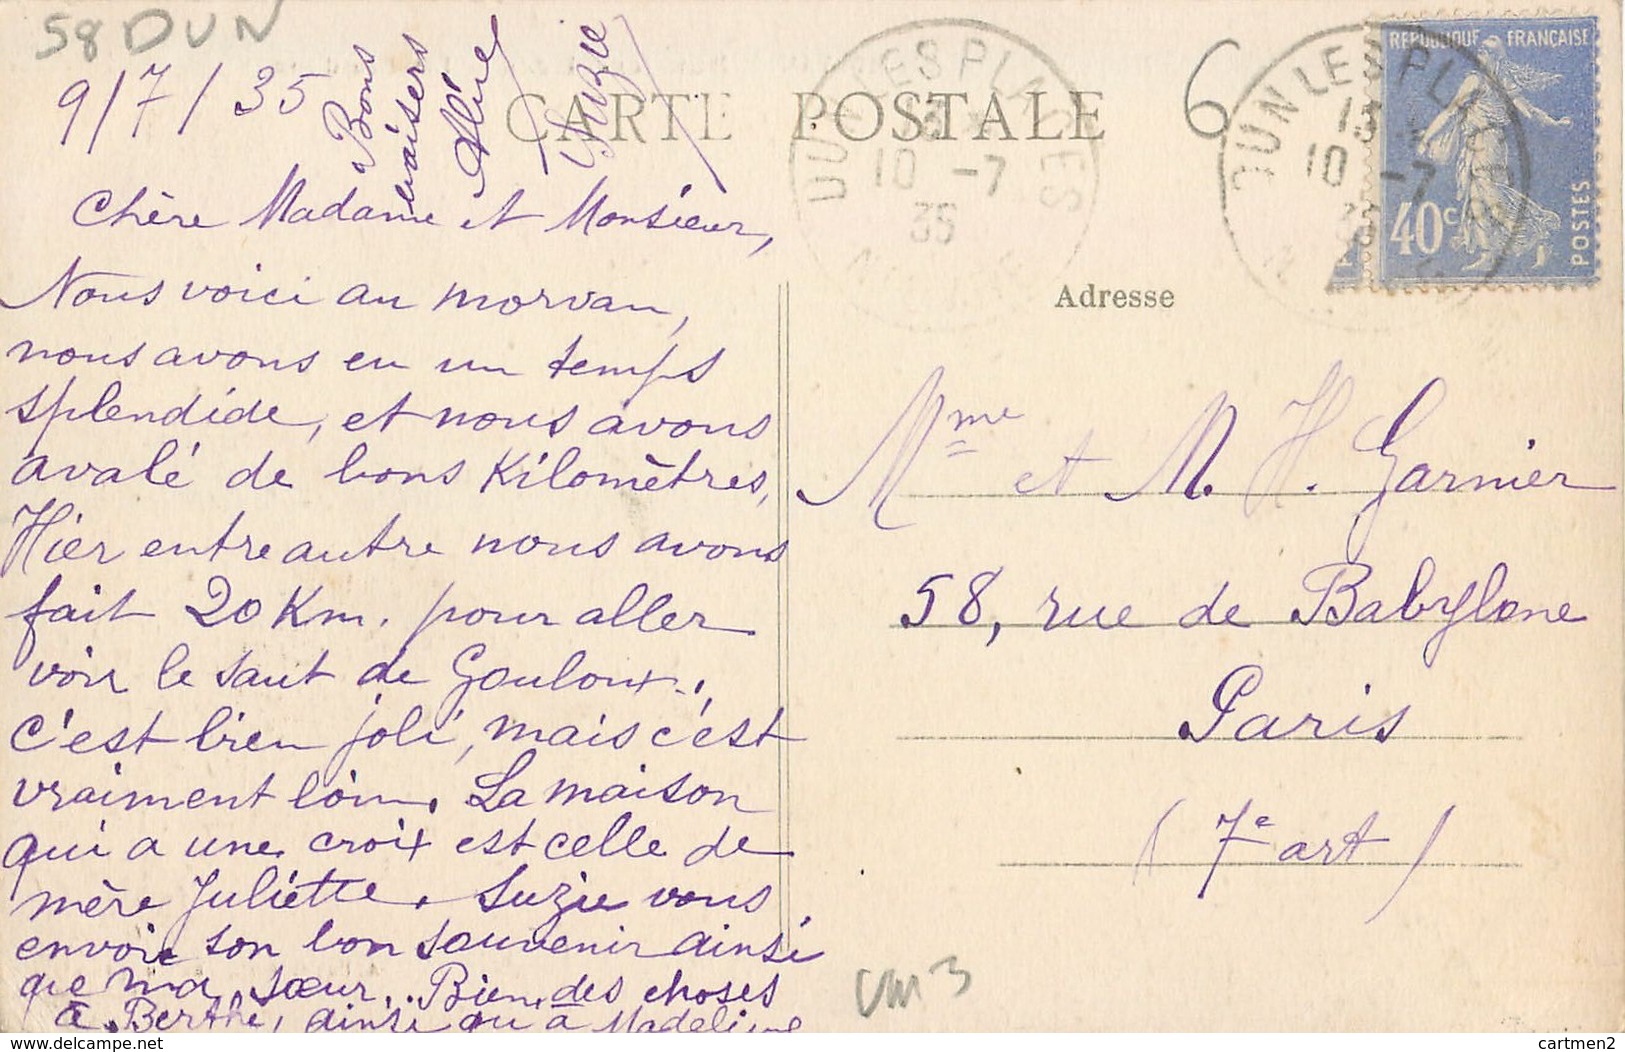 58 DUN
9/7/35
Bons
baisers
Aline
Suzie
CARTE POSTALE
DUN LES PLACES
13
10 -7
35
6
DUN LES PLACES
13
10 -7
35
REPUBLIQUE FRANÇAISE
40c
POSTES
Chère Madame et Monsieur,
Nous voici au morvan,
nous avons eu un temps
splendide, et nous avons
avalé de bons Kilomètres,
Hier entre autre nous avons
fait 20 Km. pour aller
voir le saut de Gouloux.
c'est bien joli, mais c'est
vraiment loin. La maison
qui a une croix est celle de
mère Juliette. Suzie vous
envoie son bon souvenir ainsi
que ma sœur. Bien des choses
à Berthe, ainsi qu'à Madeleine
Adresse
Mme et M. H. Garnier
58, rue de Babylone
Paris
(7e art)
VM3
delcampe.net
cartmen2